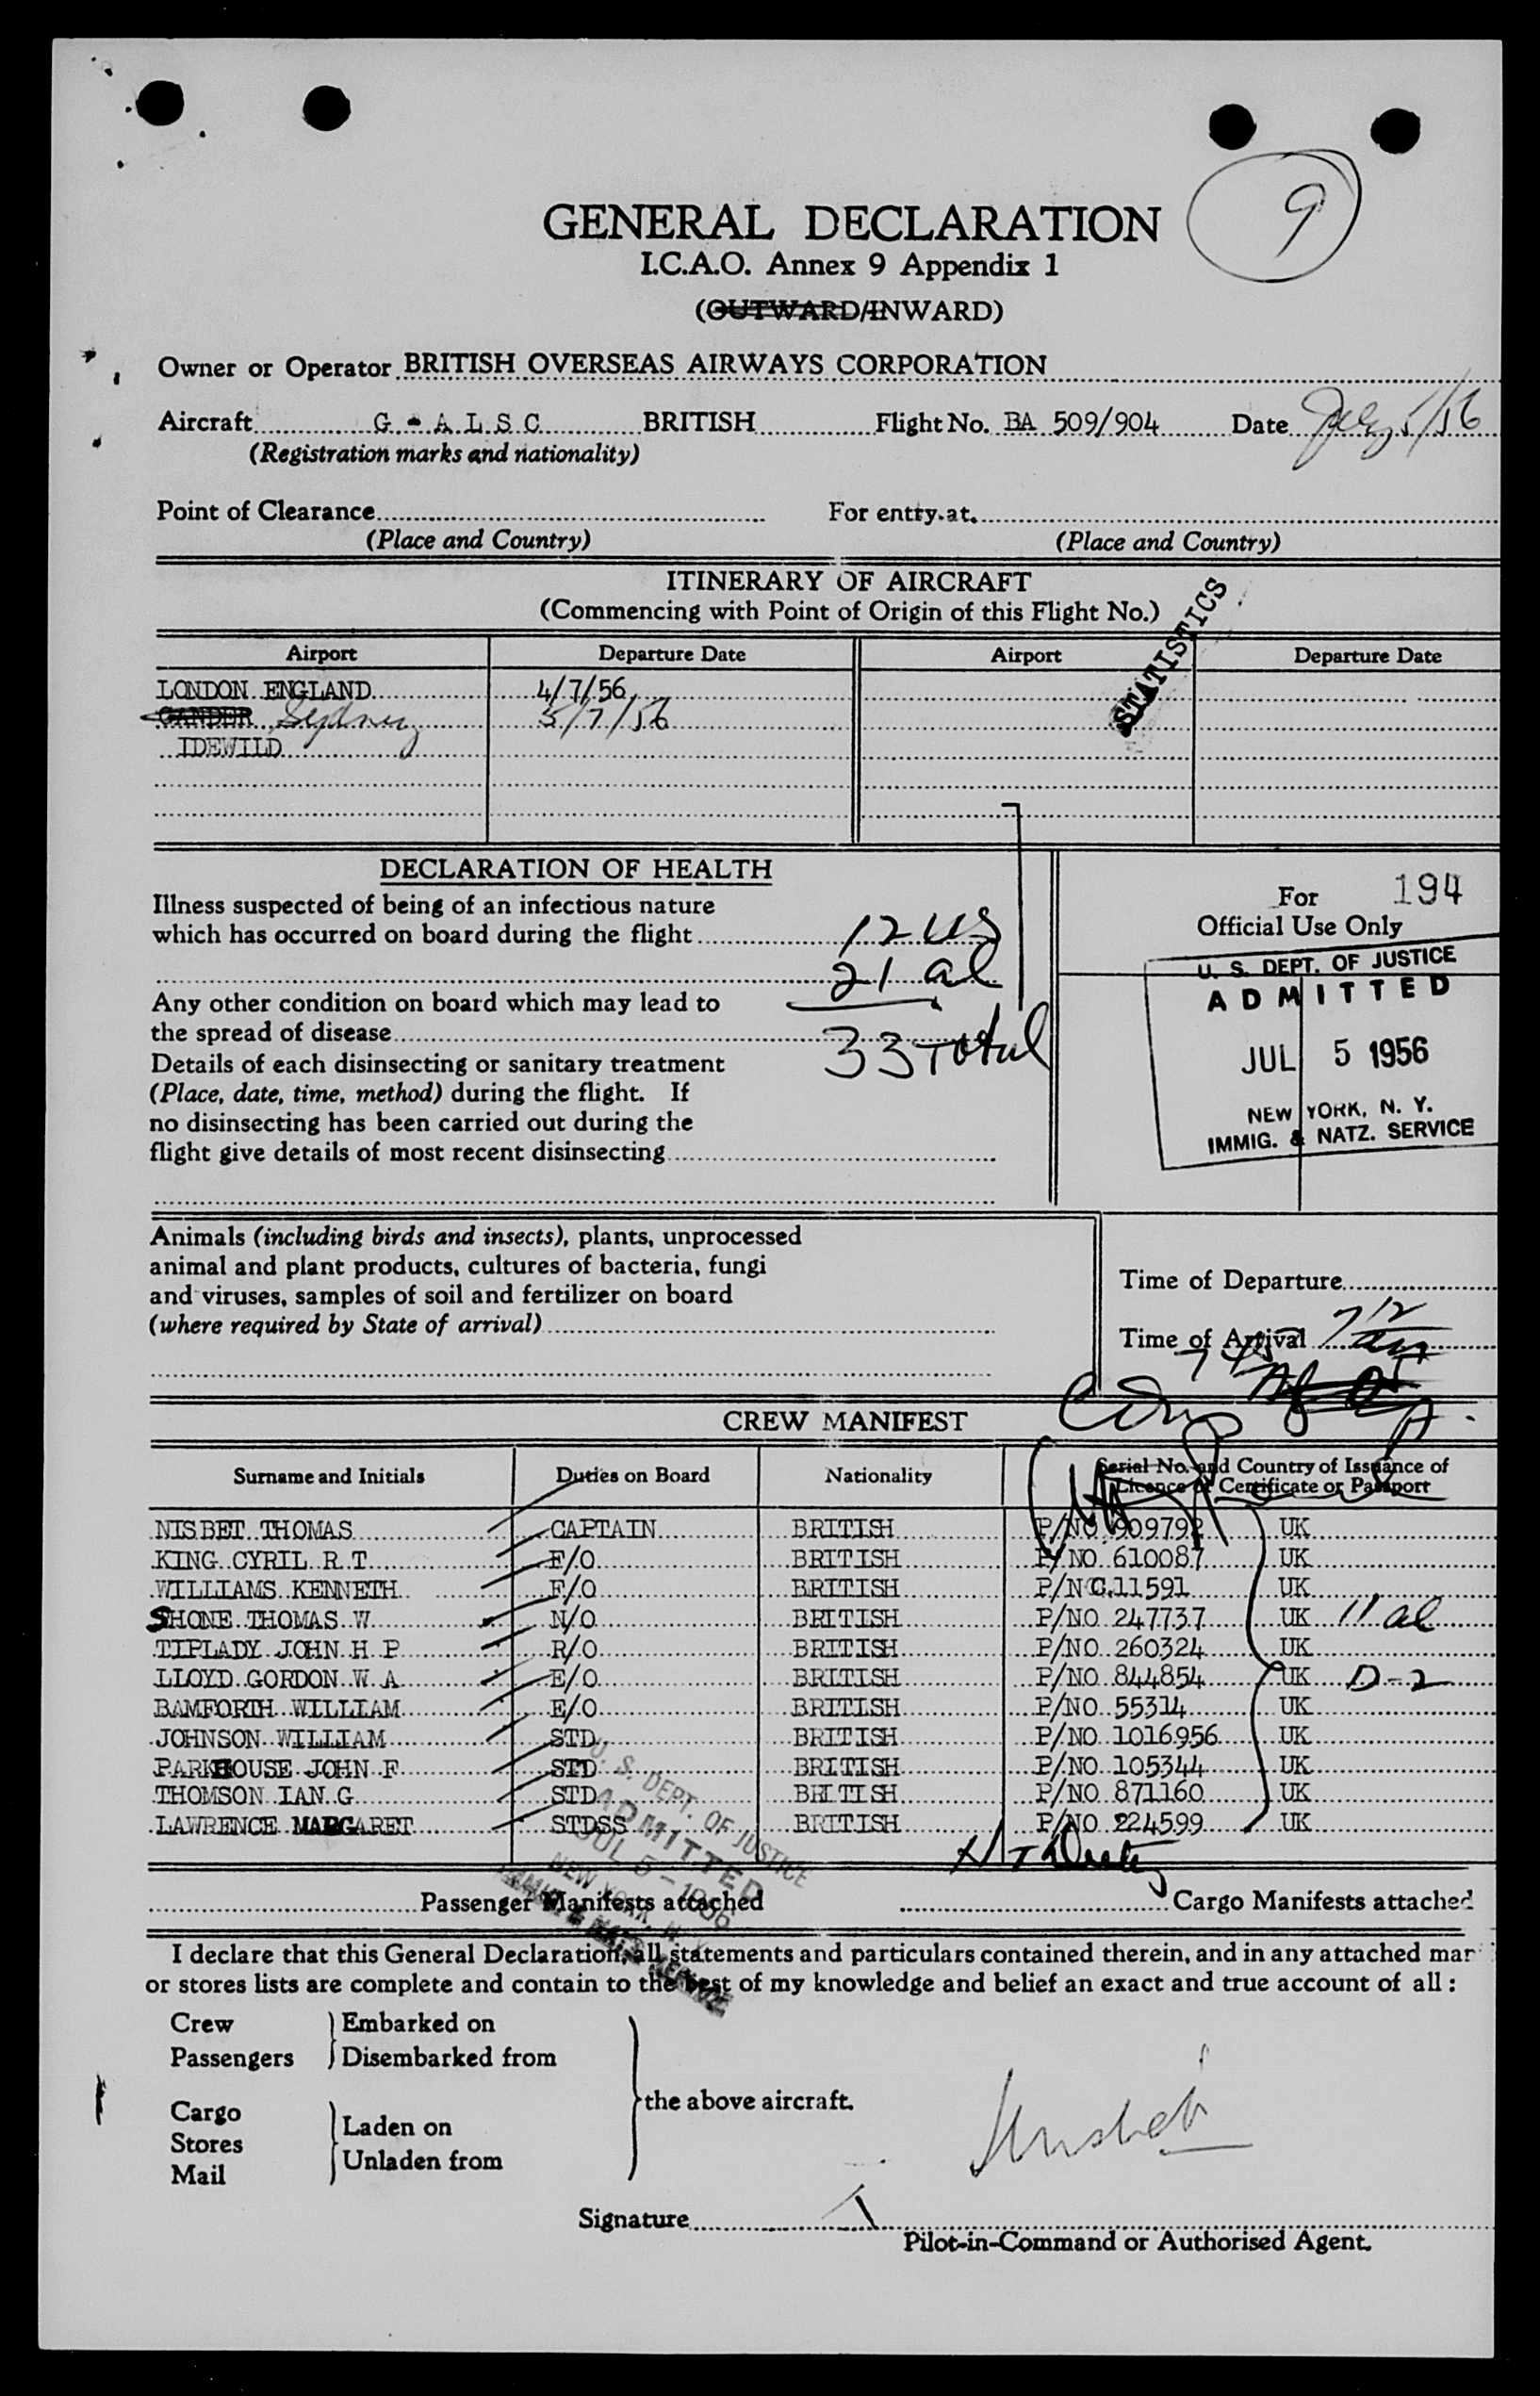 9
GENERAL DECLARATION
I.C.A.O. Annex 9 Appendix 1
(OUTWARD/INWARD)
Owner or Operator BRITISH OVERSEAS AIRWAYS CORPORATION
Aircraft G - A L S C BRITISH Flight No. BA 509/904 Date July 5/56
(Registration marks and nationality)
Point of Clearance For entry at
(Place and Country) (Place and Country)
ITINERARY OF AIRCRAFT
(Commencing with Point of Origin of this Flight No.)
STATISTICS
Airport Departure Date Airport Departure Date
LONDON ENGLAND 4/7/56
GANDER Sydney 5/7/56
IDEWILD
DECLARATION OF HEALTH
Illness suspected of being of an infectious nature
which has occurred on board during the flight 12 US
21 al
Any other condition on board which may lead to
the spread of disease
33 Total
Details of each disinsecting or sanitary treatment
(Place, date, time, method) during the flight. If
no disinsecting has been carried out during the
flight give details of most recent disinsecting
For 194
Official Use Only
U. S. DEPT. OF JUSTICE
ADMITTED
JUL 5 1956
NEW YORK, N. Y.
IMMIG. & NATZ. SERVICE
Animals (including birds and insects), plants, unprocessed
animal and plant products, cultures of bacteria, fungi
and viruses, samples of soil and fertilizer on board
(where required by State of arrival)
Time of Departure
Time of Arrival
CREW MANIFEST
Surname and Initials Duties on Board Nationality Serial No. and Country of Issuance of
Licence or Certificate or Passport
NISBET THOMAS CAPTAIN BRITISH P/NO 909792 UK
KING CYRIL R.T F/O BRITISH P/NO 610087 UK
WILLIAMS KENNETH F/O BRITISH P/NO C.11591 UK
SHONE THOMAS W N/O BRITISH P/NO 247737 UK 11 al
TIPLADY JOHN H P R/O BRITISH P/NO 260324 UK
LLOYD GORDON W A E/O BRITISH P/NO 844854 UK D-2
BAMFORTH WILLIAM E/O BRITISH P/NO 55314 UK
JOHNSON WILLIAM STD BRITISH P/NO 1016956 UK
PARKHOUSE JOHN F STD BRITISH P/NO 105344 UK
THOMSON IAN G STD BRITISH P/NO 871160 UK
LAWRENCE MARGARET STDSS BRITISH P/NO 224599 UK
U. S. DEPT. OF JUSTICE
ADMITTED
JUL 5 - 1956
NEW YORK, N. Y.
Passenger Manifests attached Cargo Manifests attached
I declare that this General Declaration, all statements and particulars contained therein, and in any attached mar
or stores lists are complete and contain to the best of my knowledge and belief an exact and true account of all :
Crew Embarked on
Passengers Disembarked from
the above aircraft.
Cargo
Laden on
Stores
Unladen from
Mail
Signature
Pilot-in-Command or Authorised Agent.